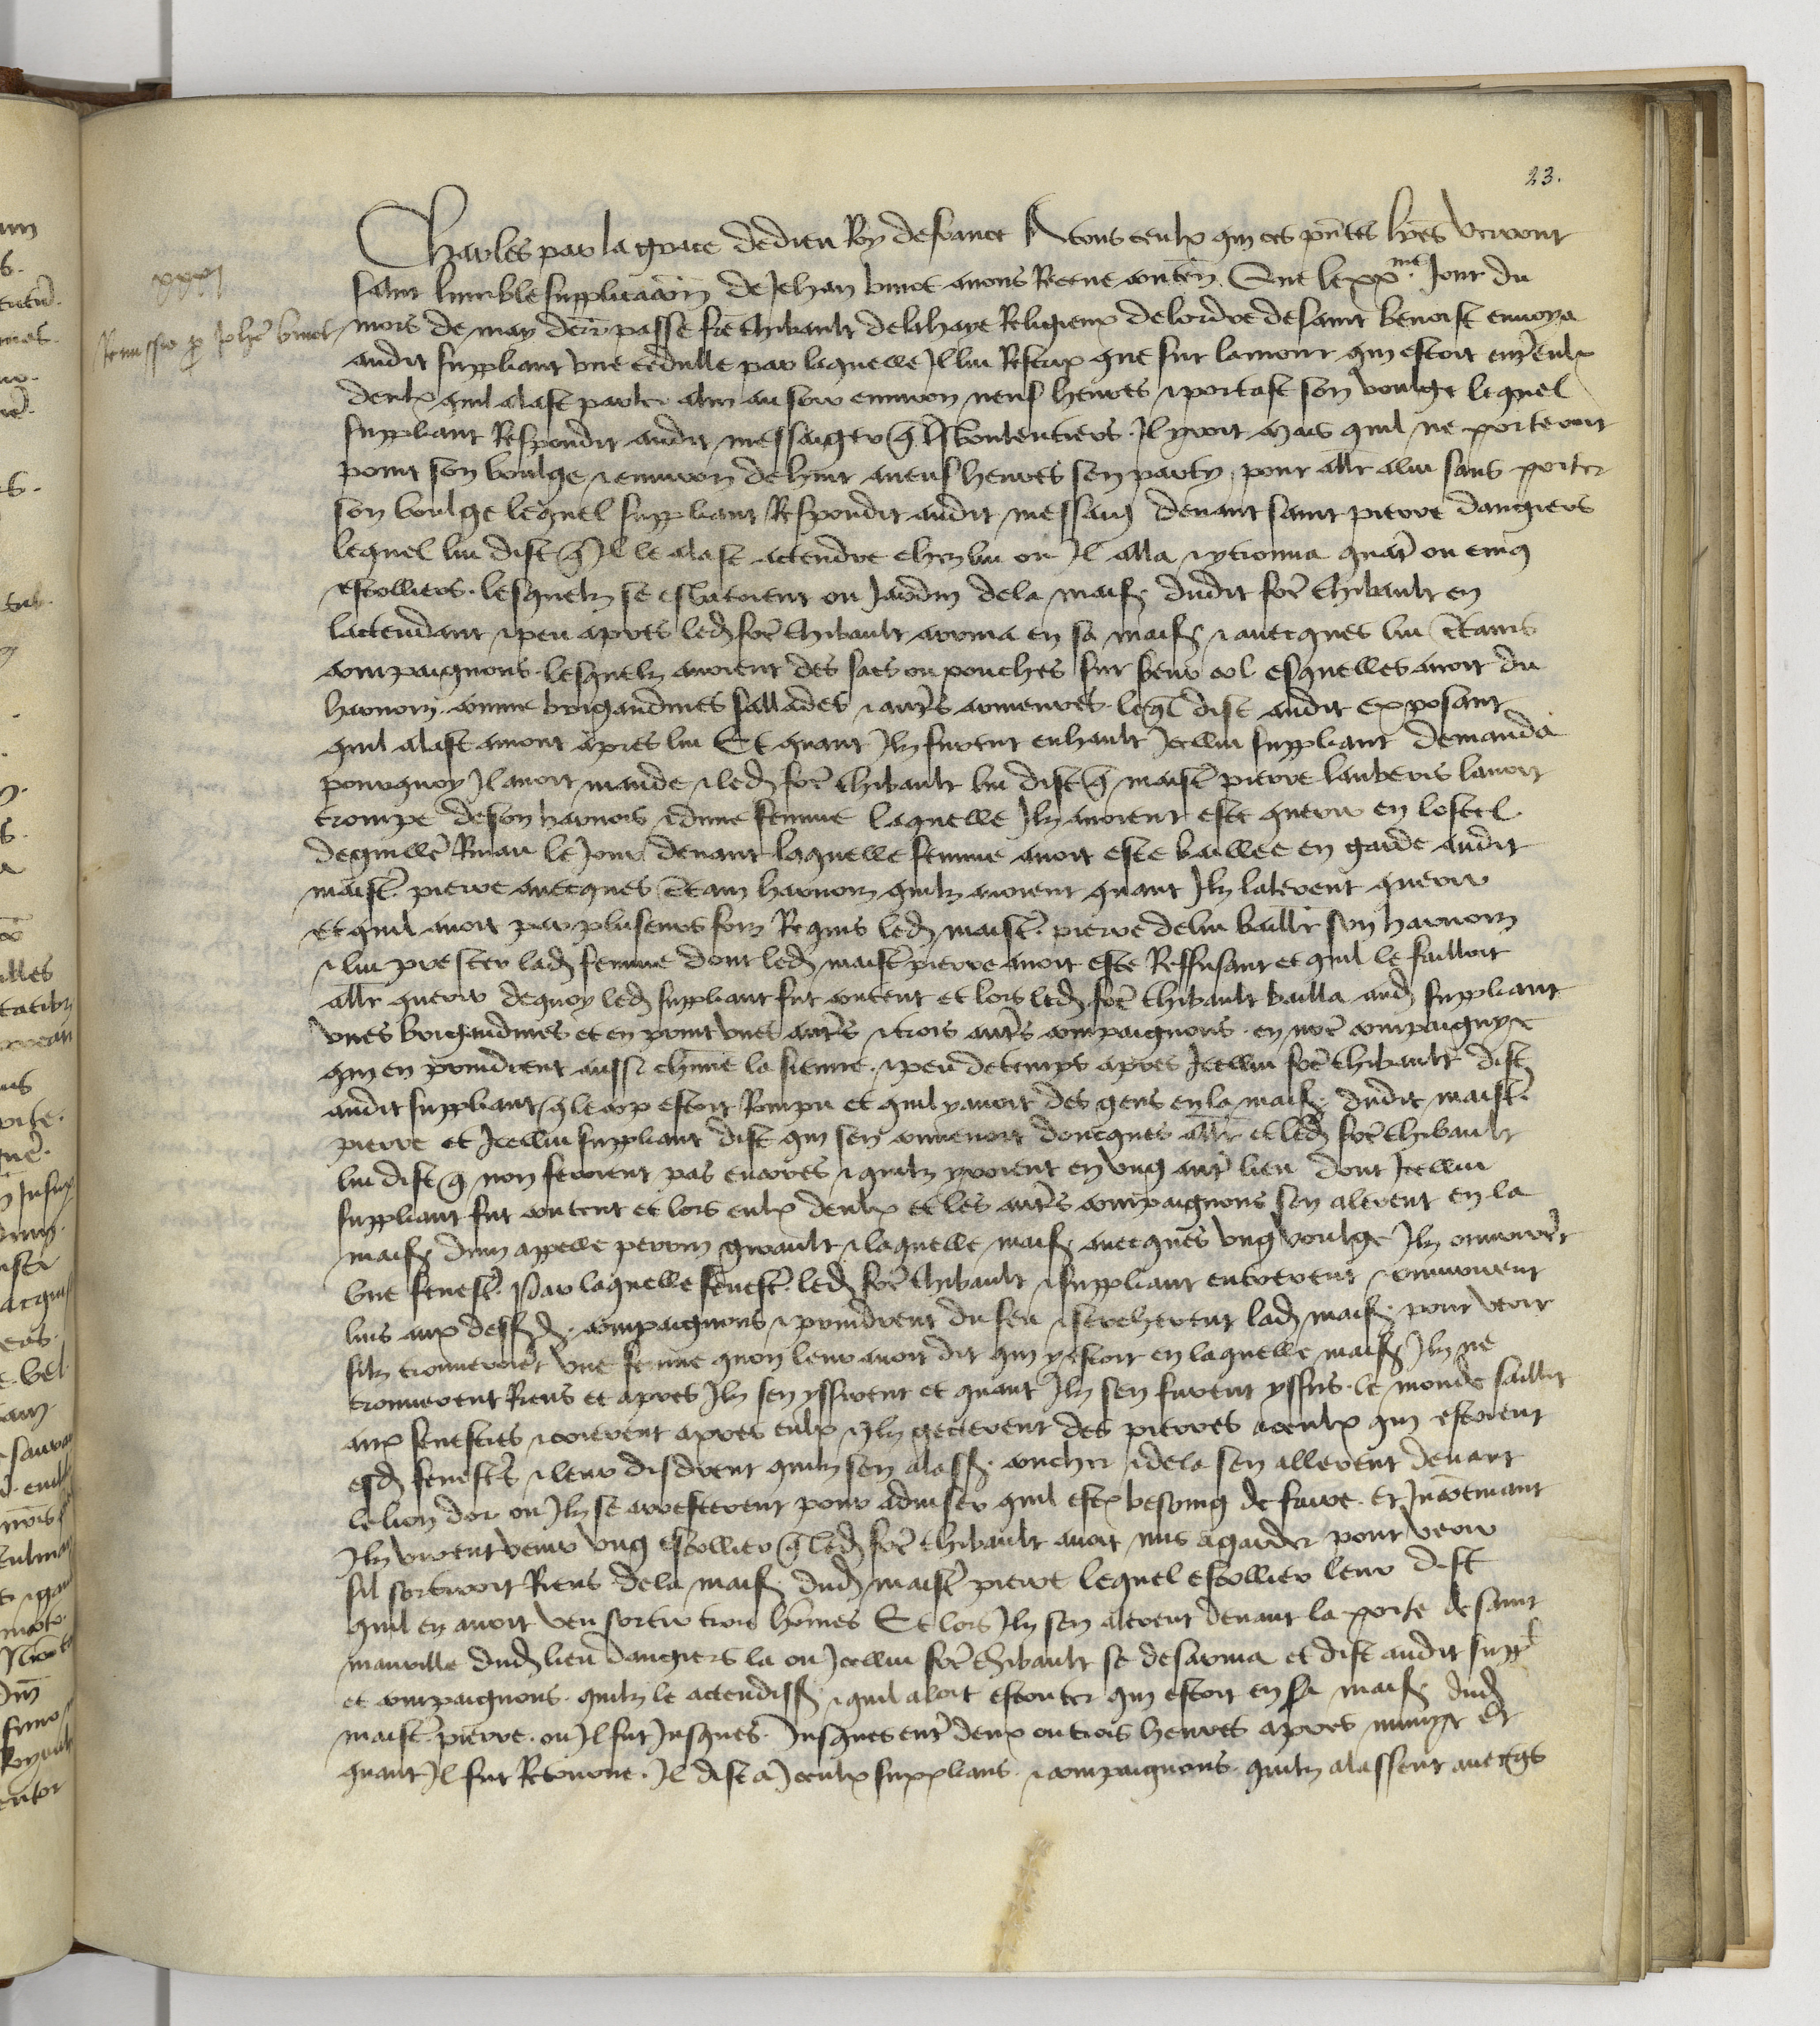 23.
xxxj
Remissio pro Johe binot
Charles par la grace de dieu Roy de france A tous ceulx qui ces pntes lres verront
salut humble supplicacion de Jehan binot avons Receue conten. Que le xxme. Jour du
mois de may derr passe fre thibault de la haye Religieux de lordre de saint benoist envoya
audit suppliant une cedulle par laquelle Il lui Rescrip que sur lamour qui estoit entre eulx
deulx quil alast parler alui au soir environ neuf heures & portast son voulge lequel
suppliant Respondit audit messaiger q voulentiers Il yroit mais quil ne porteroit
point son voulge & environ de huit a neuf heures sen party pour aller alui sans porter
son voulge lequel suppliant Respondit audit messaig devant saint pierre dangiers
lequel lui dist q Il le alast actendre chez lui ou Il alla & y trouva quatr ou cinq
escolliers. lesquelz se esbatoient ou Jardin de la mais. dudit fre thibault en
lactendant & peu apres led. fre thibault arriva en sa mais. & avecques lui certains
compaignons. lesquelz avoient des sacs ou pouches sur leurs col esquelles avoit du
harnois. comme brigandines sallades & autrs armeures. leql dist audit exposant
quil alast amont apres lui Et quant Ilz furent enhault Icellui suppliant demanda
pourquoy Il avoit mande & led. fre thibault lui dist q maist pierre lauberis lavoit
trompe de son harnois & dune femme laquelle Ilz avoient este querir en lostel
de guille Riviau le Jour devant laquelle femme avoit este baillee en garde audit
maist. pierre avecques certain harnois quilz avoient quant Ilz lalerent querir
et quil avoit par pluseurs fois Requis led. maist. pierre de lui baillr son harnois
& lui prester lad. femme dont led. maist pierre avoit este Reffusant et quil le failloit
allr querir de quoy led. suppliant fut content et lors led. fre thibault bailla aud. suppliant
unes brigandines et en print unes autrs & trois autrs compaignons en nre compaignye
qui en prindrent aussi chune la sienne. & peu de temps apres Icellui fre thibault dist
audit suppliant q le cop estoit Rompu et quil y avoit des gens en la mais. dudit maist.
pierre et Icellui suppliant dist quil sen convenoit doncques allr et led. fre thibault
lui dist q non feroient pas encores & quilz yroient en ung autr lieu dont Icellui
suppliant fut content et lors eulx deulx et les autrs compaignons sen alerent en la
mais. dun appelle perrin girault & laquelle mais. avecques ung voulge Ilz ouvrirent
une fenest. par laquelle fenest. led. fre thibault & suppliant entrerent & ouvrirent
luis aux desd. compaignons & prindrent du feu & sercherent lad. mais. pour veoir
silz trouveroient une femme quon leur avoit dit qui y estoit en laquelle mais. Ilz ne
trouverent Riens et apres Ilz sen yssirent et quant Ilz sen furent yssus. le monde saillit
aux fenestres & crierent apres eulx & Ilz gecterent des pierres a ceulx qui estoient
esd. fenestrs & leur disdrent quilz sen alass. coucher & de la sen allerent devant
le lion dor ou Ilz se arresterent pour adviser quil est besoing de faire. Et Incontinant
Ilz virent venir ung escollier q led. fre thibault avoit mis a garder pour veoir
sil sortiroit Riens de la mais. dud. maist pierre lequel escollier leur dist
quil en avoit veu sortir trois homes Et lors Ilz sen alerent devant la porte de saint
maurille dud. lieu dangiers la ou Icellui fre thibault se desarma et dist audit suppl
et compaignons. quilz le actendiss. & quil aloit escouter qui estoit en la mais. dud.
maist pierre. ou Il fut Jusques. Jusques entr deux ou trois heures apres mynuyt Et
quant Il fut Retourne. Il dist a Iceulx supplians. & compaignons. quilz alassent avecqs